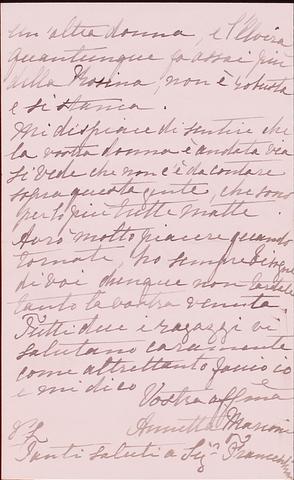 un altra donna, e l'Elvira
quantunque fa assai più
della Rosina, non è robusta
e si stanca.
Mi dispiace di sentire che
la vostra donna è andata via
si vede che non c'è da contare
sopra questa gente, che sono
per lo più tutte matte.
Avrò molto piacere quando
tornate, ho sempre bisogno
di voi dunque non tardate
tanto la vostra venuta.
Tutti due i ragazzi vi
salutano caramente
come altrettanto faccio io
e mi dico
Vostra affma
Annetta
P.S.
Tanti saluti a Sigra